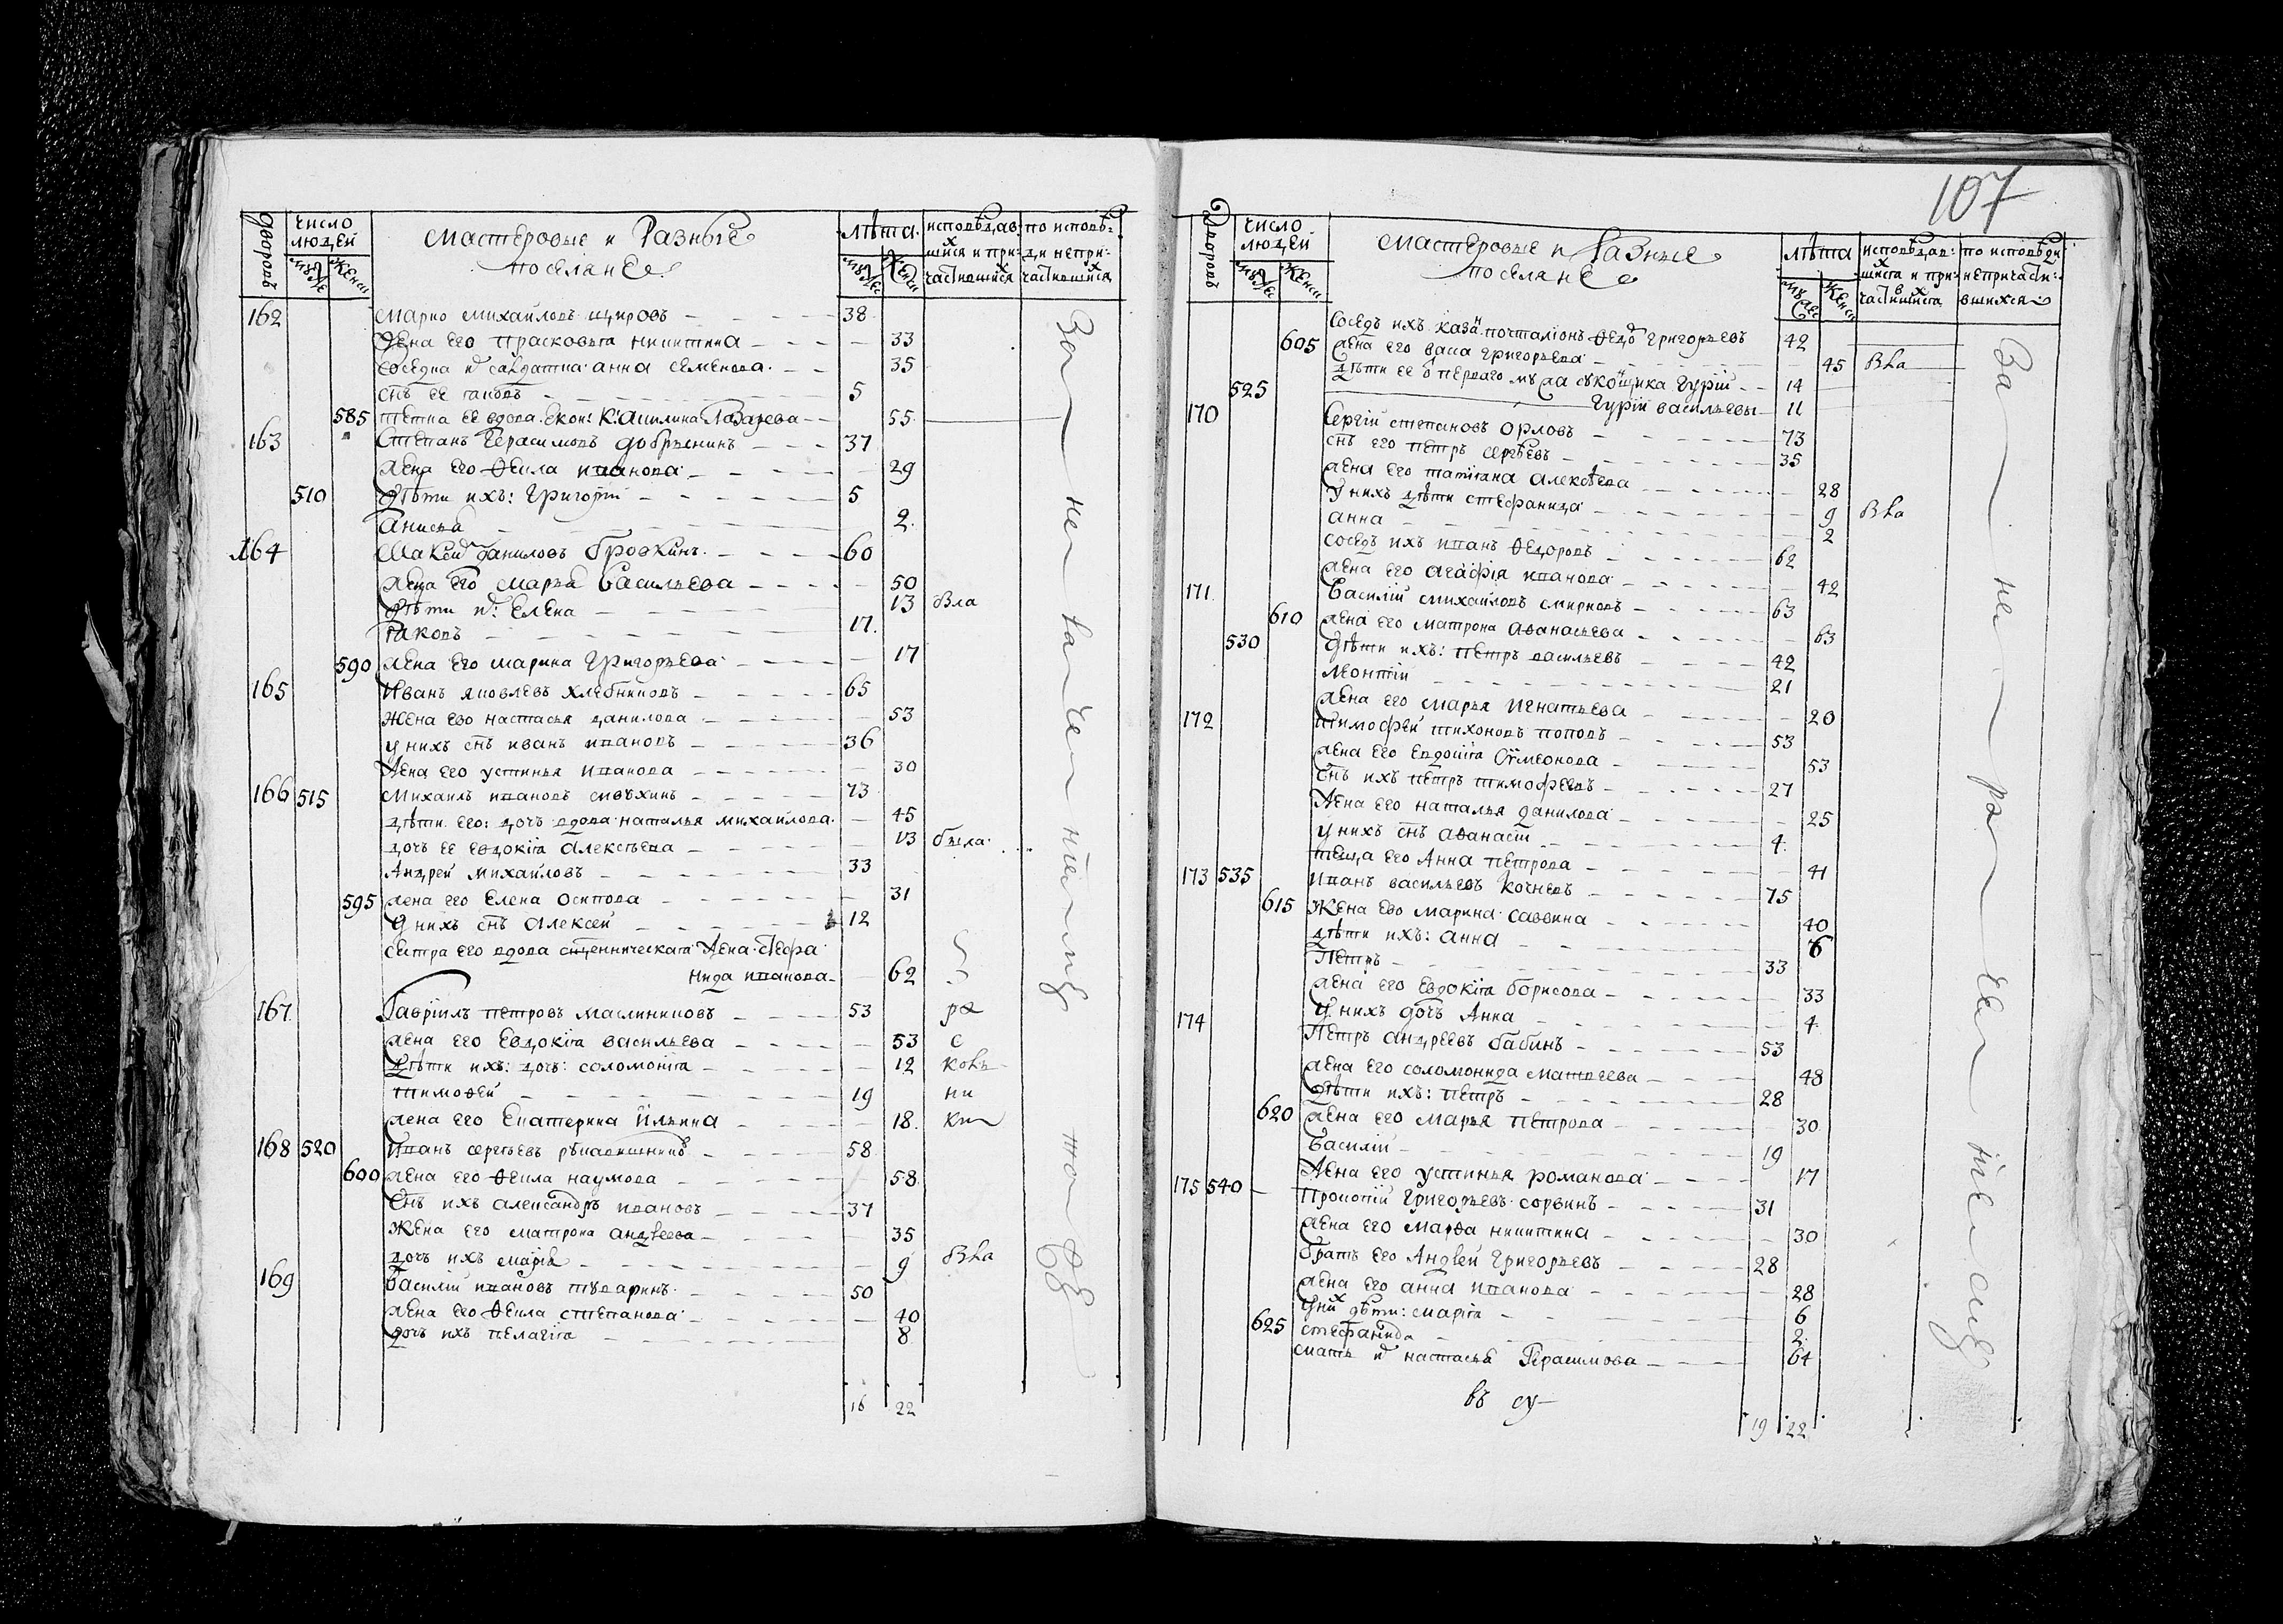 дворовъ
число людей
муж
женск
мастеровые и Разные
поселяне
лѣта
муж
жен
исповѣдав
шихся и при
частившихся
по исповѣ
ди непри
частившихся
162 Марко михаиловъ щировъ 38
жена его прасковья никитина 33
соседка ихъ салдатка анна семенова 35
снъ ее іаковъ 5
585 тетка ее вдова Лазарева 55
163 Степанъ Герасимовъ добрынинъ 37
жена его Ѳекла иванова 29
510 дѣти ихъ: Григорій 5
Анисья 2
164 Даниловъ Бровкинъ 60
жена его марья васильева 50
дѣти ихъ елена 13 была
Іаковъ 17
590 жена его марина Григорьева 17
165 Иванъ яковлевъ хлебниковъ 65
жена ево настасья данилова 53
у нихъ снъ иванъ ивановъ 36
жена его устинья иванова 30
166 515 Михаилъ ивановъ 73
дѣти его: дочь вдова наталья михаилова 45
дочь ее евдокія алексѣева 13 была
Андрей михаиловъ 33
595 жена его елена осипова 31
у нихъ снъ алексей 12
сестра его вдова священническая жена стефа
нида иванова 62
167 Гавріилъ петровъ маслениковъ 53
жена его евдокія васильева 53
дѣти ихъ: дочь: соломонія 12
тимоѳей 19
жена его екатерина Ильина 18
168 520 Иванъ сергѣевъ 58
600 жена его Ѳекла наумова 58
Снъ ихъ александръ ивановъ 37
Жена его матрона андреева 35
дочь ихъ марія 9 была
169 Василій ивановъ 50
жена его Ѳекла степанова 40
дочь ихъ пелагія 8
16 22
107
Дворовъ
число людей
муж
женск
мастеровые и Разные
поселяне
лѣта
муж
женск
исповѣдав
шихся и при
частившихся
по исповѣди
непричасти
вшихся
Соседъ ихъ казан почталіонъ Ѳедоръ Григорьевъ 42
605 жена его васа григорьева 45 была
дѣти ее перваго мужа суконщика Гурій 14
525 Гурій васильевы 11
170 Сергій степановъ орловъ 73
снъ его петръ сергѣевъ 35
жена его татіана алексѣева 28
у нихъ дѣти стефанида 9 была
анна 2
соседъ ихъ иванъ Ѳедоровъ 62
жена его агафія иванова 42
171 Василій михаиловъ смирновъ 63
610 жена его матрона аѳанасьева 63
530 дѣти ихъ: петръ васильевъ 42
Монтій 21
жена его марья игнатьева 20
172 тимофей тихоновъ поповъ 53
жена его евдокія Сѵмеонова 53
Снъ ихъ петръ тимофеевъ 27
жена его наталья данилова 25
у нихъ снъ аѳанасій 4
теща его анна петрова 41
173 535 Иванъ васильевъ кочневъ 75
615 Жена ево марина саввина 40
дѣти ихъ: анна 6
Петръ 33
жена его евдокія борисова 33
у нихъ дочь Анна 4
174 Петръ андреевъ бабинъ 53
жена его соломонида матвеева 48
дѣти ихъ: петръ 28
620 жена его марья петрова 30
Василій 19
жена его устинья романова 17
175 540 Прокопій Григорьевъ сорвинъ 31
жена его марѳа никитина 30
братъ его Андрей Григорьевъ 28
жена его анна иванова 28
у них дѣти: марія 6
625 стефанида 2
мать ихъ настасья Герасимова 64
въ су
19 22